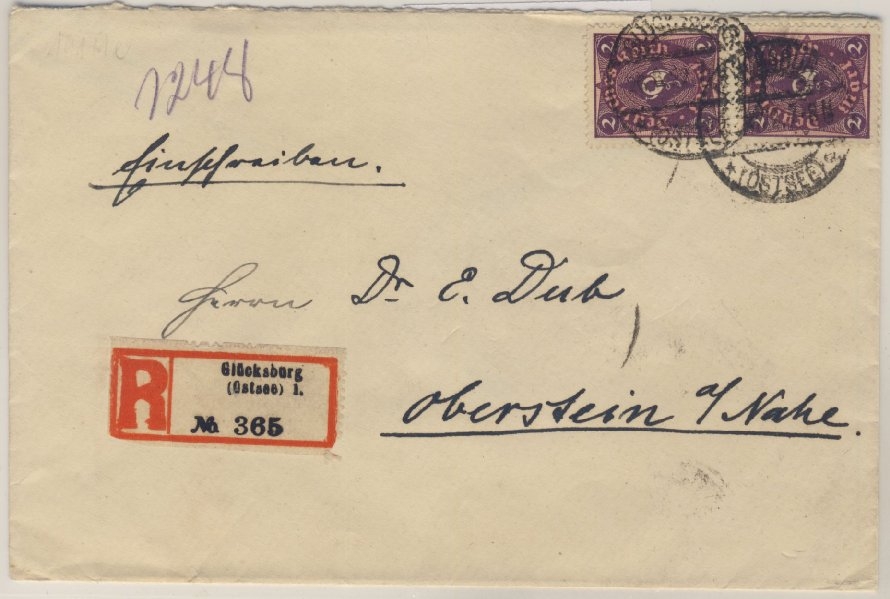 1248
Einschreiben.
Herrn Dr. E. Dub
Oberstein a/Nahe.
R
Glücksburg
(Ostsee) 1.
№ 365
2 2
2 2
Deutsches Reich
(OSTSEE)